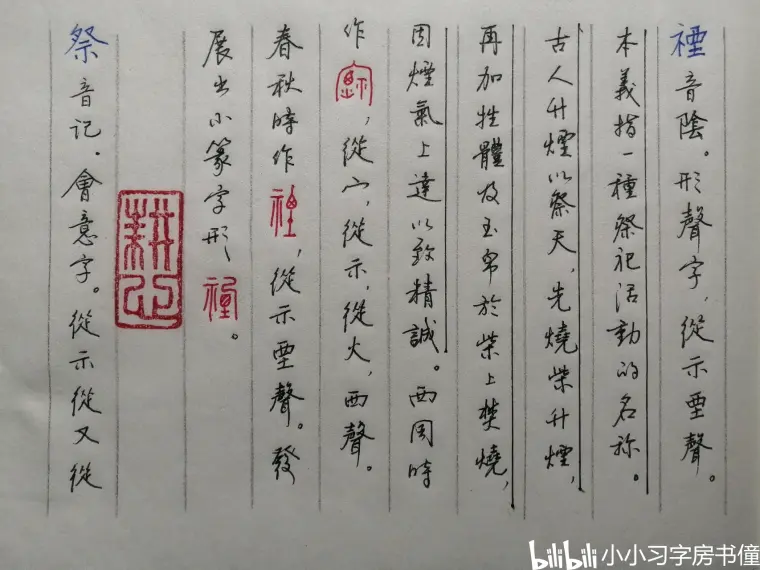 禋音陰。形聲字，從示垔聲。
本義指一種祭祀活動的名称。
古人升煙以祭天，先燒柴升煙，
再加牲體及玉帛於柴上焚燒，
因煙氣上達以致精誠。西周時
作，從宀，從示，從火，西聲。
春秋時作禋，從示垔聲。發
展出小篆字形禋。
祭音记．會意字。從示從又從
耕心
bilibili 小小习字房书僮